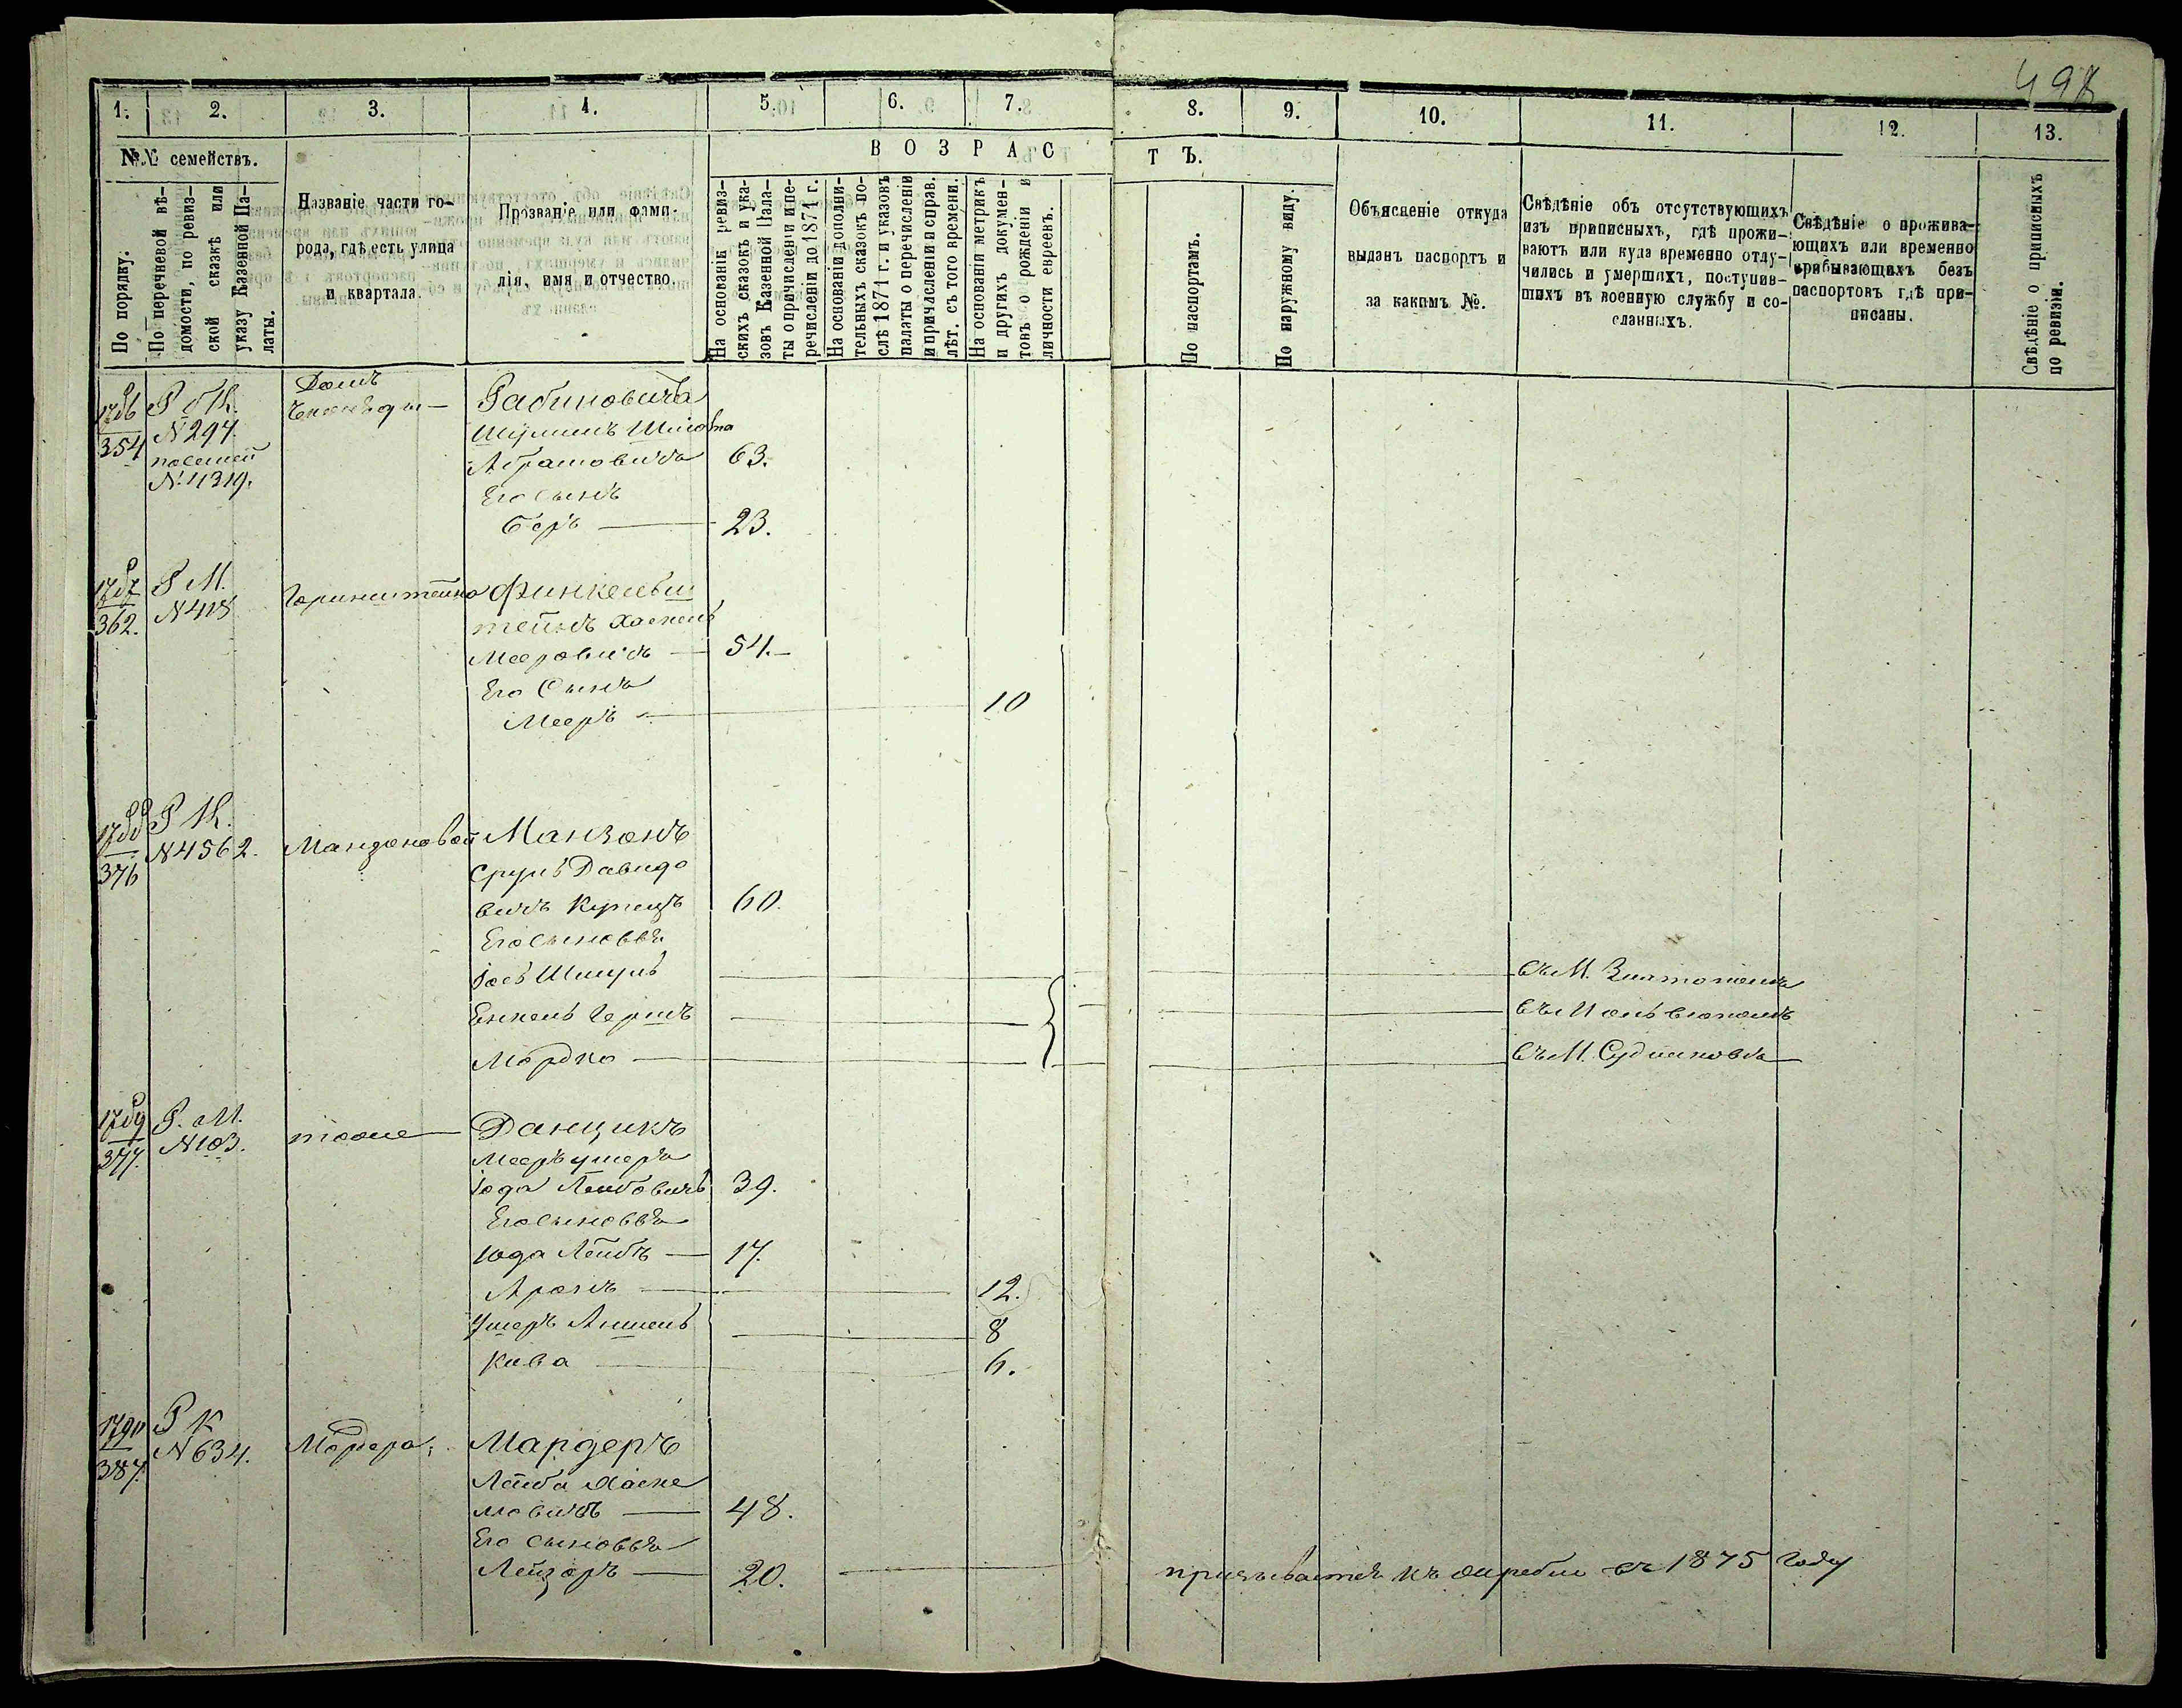 498
1. 2. 3. 4. 5. 6. 7. 8. 9. 10. 11. 12. 13.
№№ семействъ.
В О З Р А С Т Ъ.
По порядку.
По перечневой вѣ-
домости, по ревиз-
ской сказкѣ или
указу Казенной Па-
латы.
Названіе части го-
рода, гдѣ есть улица
и квартала.
Прозваніе или фами-
лія, имя и отчество.
На основаніи ревиз-
скихъ сказокъ и ука-
зовъ Казенной Пала-
ты о причисленіи и пе-
речисленіи до 1871 г.
На основаніи дополни-
тельныхъ сказокъ по-
слѣ 1871 г. и указовъ
палаты о перечисленіи
и причисленіи и справ.
лѣт. съ того времени.
На основаніи метрикъ
и другихъ докумен-
товъ о рожденіи и
личности евреевъ.
По паспортамъ.
По наружному виду.
Объясненіе откуда
выданъ паспортъ и
за какимъ №.
Свѣдѣніе объ отсутствующихъ
изъ приписныхъ, гдѣ прожи-
ваютъ или куда временно отлу-
чились и умершихъ, поступив-
шихъ въ военную службу и со-
сланныхъ.
Свѣдѣніе о прожива-
ющихъ или временно
прибывающихъ безъ
паспортовъ гдѣ при-
писаны.
Свѣдѣніе о приписныхъ
по ревизіи.
1786 Р. М. Домъ Рабиновичъ
354 №297
Абрамовичъ 63.
№4319. Его сынъ
Беръ 23.
1787 Р М. Горинштейна Финкельш
362. №418 тейнъ Хаскель
Мееровичъ 54.
Его Сынъ
Мееръ 10
1788 Р М. Манзонъ
376 №4562. Мандзоновой Сруль Давидо
вичъ Купецъ 60.
Его сыновья
Іось Шмуль въ М. Златополѣ
Енкель Гершъ
Мордко въ М. Судилковѣ
1789 Р. М. тоже Данцикъ
377. №103. Мееръ умеръ
Іода Лейбовичъ 39.
Его сыновья
Юда Лейбъ 17.
Аронъ 12.
Ушеръ Аншель 8
Кива 6.
1790 Р К
387. №634. Мардера Мардеръ
Лейба Хаске
ловичъ 48.
Его сыновья
Лейзоръ 20. призывается къ жребію въ 1875 году